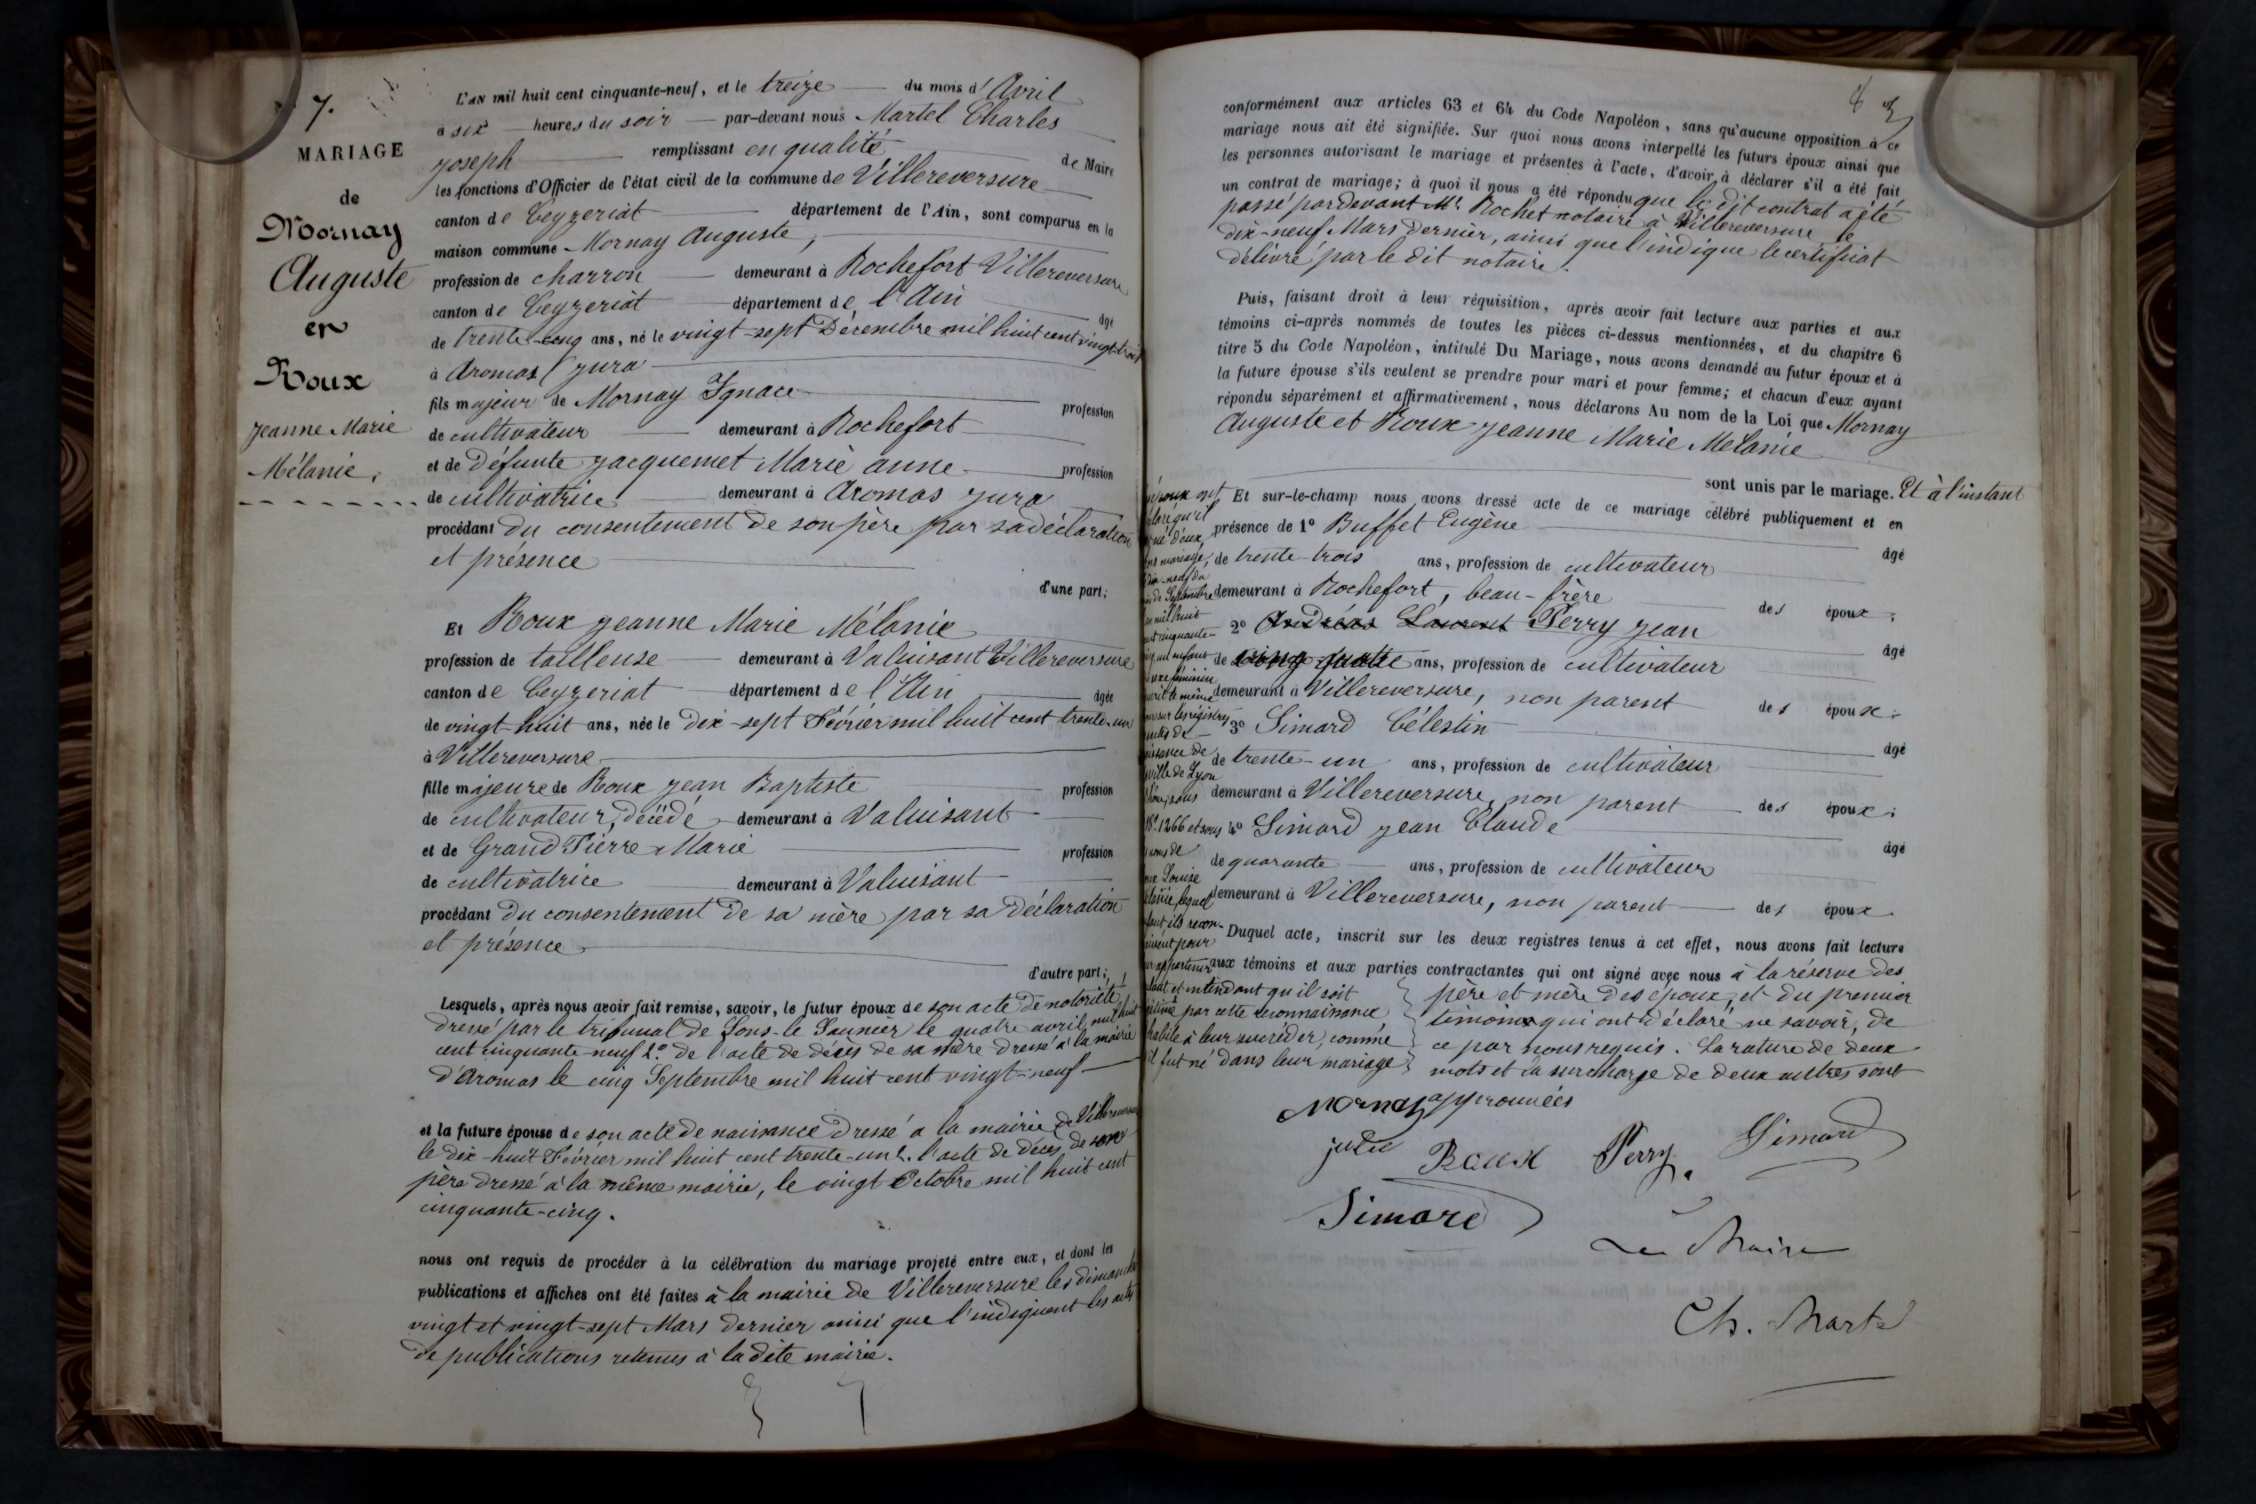 7.
MARIAGE
de
Mornay
Auguste
en
Roux
Jeanne Marie
Mélanie.
L'AN mil huit cent cinquante-neuf, et le treize du mois d'Avril
à six heures du soir par-devant nous Martel Charles
Joseph remplissant en qualité de Maire
les fonctions d'Officier de l'état civil de la commune de Villereversure
canton de Ceyzeriat département de l'Ain, sont comparus en la
maison commune Mornay Auguste,
profession de charron demeurant à Rochefort Villereversure
canton de Ceyzeriat département de l'Ain âgé
de trente-cinq ans, né le vingt-sept Décembre mil huit cent vingt-trois
à Aromas (Jura
fils majeur de Mornay Ignace profession
de cultivateur demeurant à Rochefort
et de Défunte Jacquemet Marie anne profession
de cultivatrice demeurant à Aromas Jura
procédant du consentement de son père par sa déclaration
et présence
d'une part;
Et Roux Jeanne Marie Mélanie
profession de tailleuse demeurant à Valuisant Villereversure
canton de Ceyzeriat département de l'Ain âgée
de vingt-huit ans, née le dix-sept Février mil huit cent trente-un
à Villereversure
fille majeure de Roux Jean Baptiste profession
de cultivateur, décédé demeurant à Valuisant
et de Grand Pierre Marie profession
de cultivatrice demeurant à Valuisant
procédant du consentement de sa mère par sa déclaration
et présence
d'autre part;
Lesquels, après nous avoir fait remise, savoir, le futur époux de son acte de notoriété
dressé par le tribunal de Lons-le Saunier le quatre avril mil huit
cent cinquante-neuf 2.° de l'acte de décès de sa mère dressé à la mairie
d'Aromas le cinq Septembre mil huit cent vingt-neuf
et la future épouse de son acte de naissance dressé à la mairie de Villereversure
le dix-huit Février mil huit cent trente-un 2. l'acte de décès de son
père dressé à la même mairie, le vingt Octobre mil huit cent
cinquante-cinq.
nous ont requis de procéder à la célébration du mariage projeté entre eux, et dont les
publications et affiches ont été faites à la mairie de Villereversure les dimanches
vingt et vingt-sept Mars dernier ainsi que l'indiquent les actes
de publications retenus à la dite mairie.
8
conformément aux articles 63 et 64 du Code Napoléon, sans qu'aucune opposition à ce
mariage nous ait été signifiée. Sur quoi nous avons interpellé les futurs époux ainsi que
les personnes autorisant le mariage et présentes à l'acte, d'avoir à déclarer s'il a été fait
un contrat de mariage; à quoi il nous a été répondu que le dit contrat a été
passé pardevant Mr. Rochet notaire à Villereversure le
dix-neuf Mars dernier, ainsi que l'indique le certificat
délivré par le dit notaire.
Puis, faisant droit à leur réquisition, après avoir fait lecture aux parties et aux
témoins ci-après nommés de toutes les pièces ci-dessus mentionnées, et du chapitre 6
titre 5 du Code Napoléon, intitulé Du Mariage, nous avons demandé au futur époux et à
la future épouse s'ils veulent se prendre pour mari et pour femme; et chacun d'eux ayant
répondu séparément et affirmativement, nous déclarons Au nom de la Loi que Mornay
Auguste et Roux Jeanne Marie Mélanie
sont unis par le mariage. Et à l'instant
Et sur-le-champ nous avons dressé acte de ce mariage célébré publiquement et en
présence de 1° Buffet Eugène âgé
de trente-trois ans, profession de cultivateur
demeurant à Rochefort, beau-frère des époux;
2° Andréas Laurent Perry Jean âgé
de ans, profession de cultivateur
demeurant à Villereversure, non parent des époux;
3° Simard Célestin âgé
de trente-un ans, profession de cultivateur
demeurant à Villereversure, non parent des époux;
4° Simard Jean Claude âgé
de quarante ans, profession de cultivateur
demeurant à Villereversure, non parent des époux.
Duquel acte, inscrit sur les deux registres tenus à cet effet, nous avons fait lecture
aux témoins et aux parties contractantes qui ont signé avec nous à la réserve des
père et mère des époux, et du premier
témoin qui ont déclaré ne savoir, de
ce par nous requis. La rature de deux
mots et la surcharge de deux autres sont
approuvées
époux ont
qu'il
né d'eux,
mariage,
dix-neuf du
de Septembre
mil huit
cinquante-
un enfant
féminin
le même
sur les régistres
de
naissance de
ville de Lyon
sous
N°. 1266 et sous
noms de
Louise
lequel
ils recon-
pour
appartenir
et intendant qu'il soit
par cette reconnaissance
habile à leur succéder, comme
il fut né dans leur mariage
Mornay
Roux Perry. Simard
Simard
Le Maire
Ch. Martel